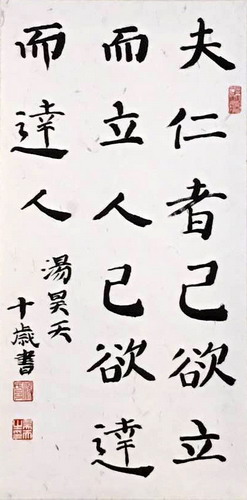 夫仁者己欲立
而立人己欲達
而達人
湯昊天
十歲書